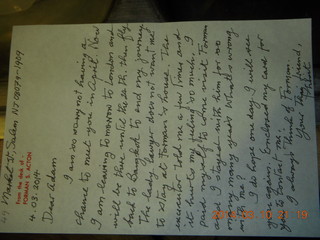 69 Market St. Salem NJ 08079-1909
From the desk of ..
FORMAN S. ACTON
4.03.2014
Dear Adam
I am so sorry not having a
chance to meet you in April. Now
I am leaving tomorrow to London and
will be there until the 25th, then fly
back to Bangkok to end my journey.
The lady lawyer does not want me
to stay at Forman's house. The
executor told me a few times and
it hurts my feeling so much. I
paid myself to come visit Forman
and I stayed with him for so
many many years. What's wrong
with me?
I do hope one day I will see
you again. Enclosed my card for
you to contact me.
I always think of Forman.
Your Thai friend,